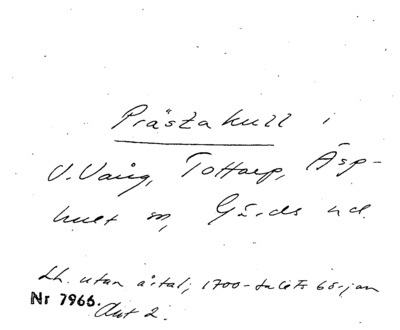 Prästakull i
V. Vång, Tottarp, Äsp-
hult sn, Gärds hd.
Lh. utan årtal; 1700-talets början
Nr 7966.
Akt 2.